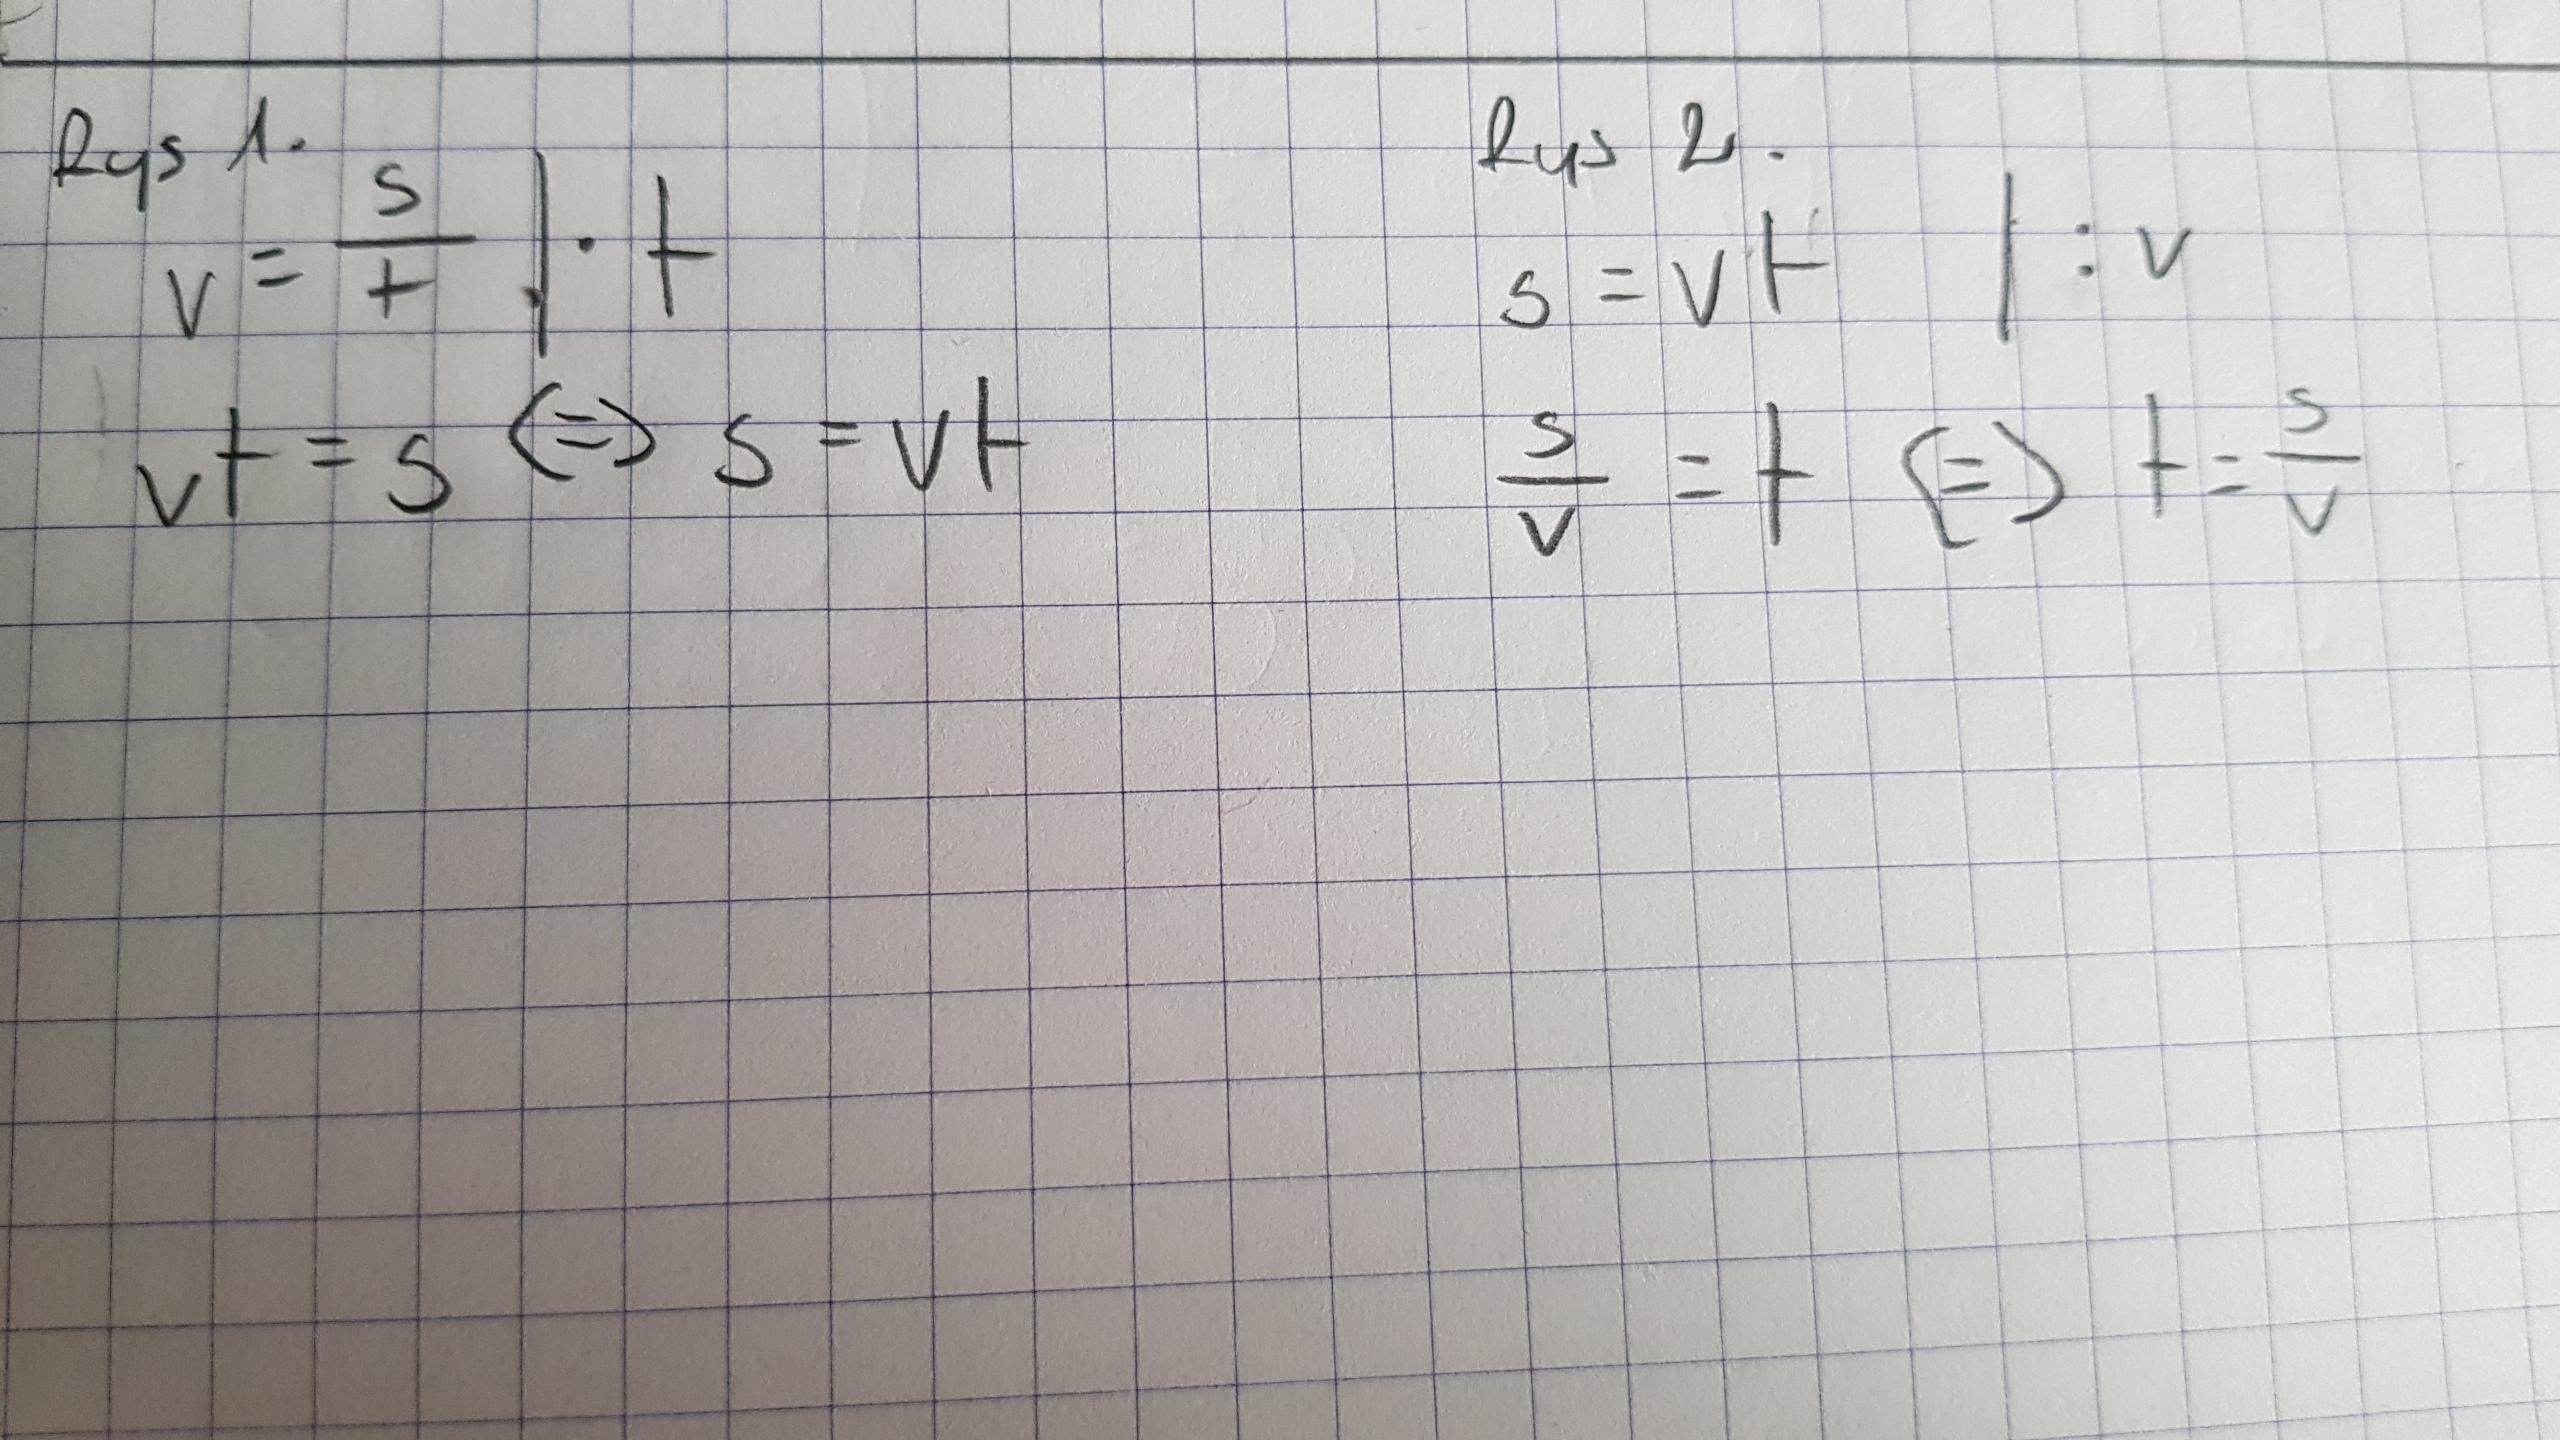 Rys 1.
v = s/t | · t
vt = s (=) s = vt
Rys 2.
s = vt | : v
s/v = t (=) t = s/v